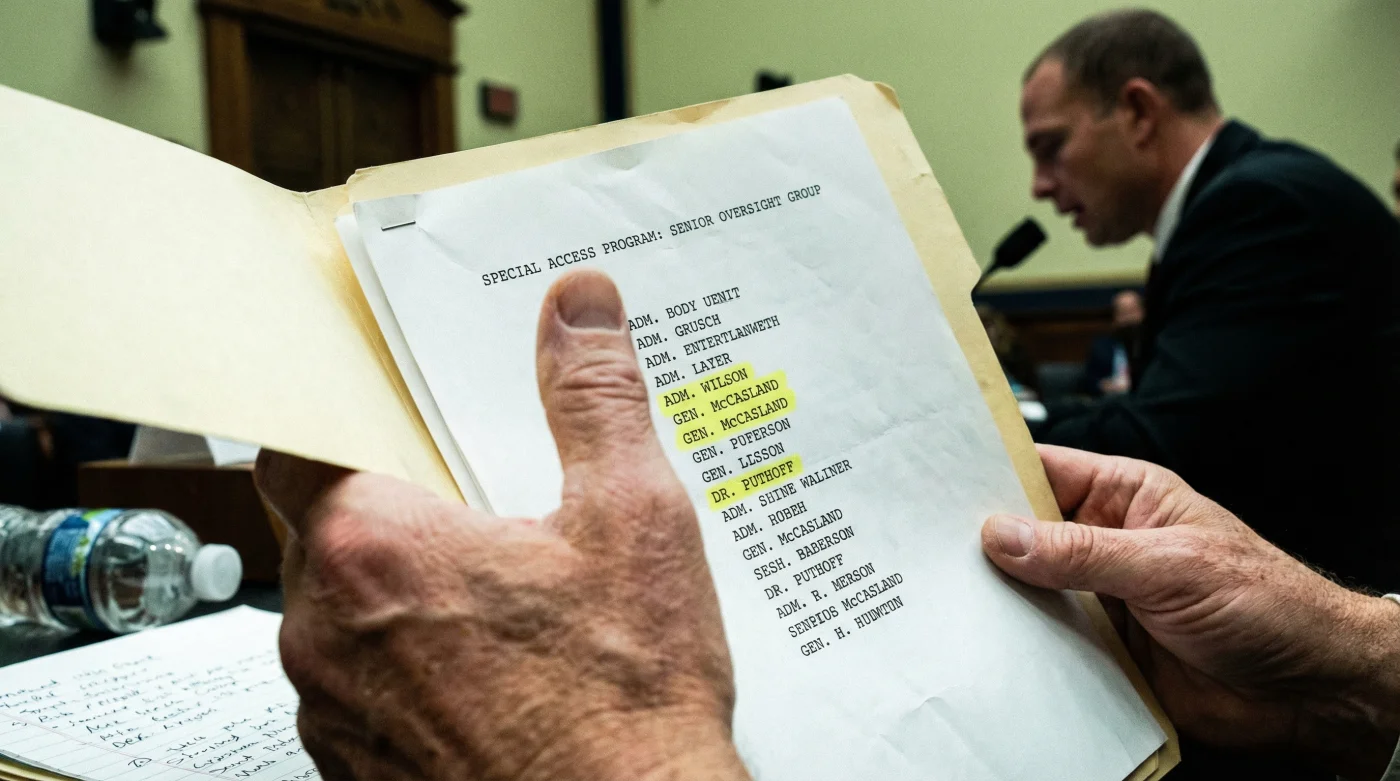 SPECIAL ACCESS PROGRAM: SENIOR OVERSIGHT GROUP
ADM. BODY UENIT
ADM. GRUSCH
ADM. ENTERTLANWETH
ADM. LAYER
ADM. WILSON
GEN. McCASLAND
GEN. McCASLAND
GEN. POFERSON
GEN. LISSON
DR. PUTHOFF
ADM. SHINE WALINER
ADM. ROBEH
GEN. McCASLAND
SESH. BABERSON
DR. PUTHOFF
ADM. R. MERSON
SENPIOS McCASLAND
GEN. H. HUDMTON